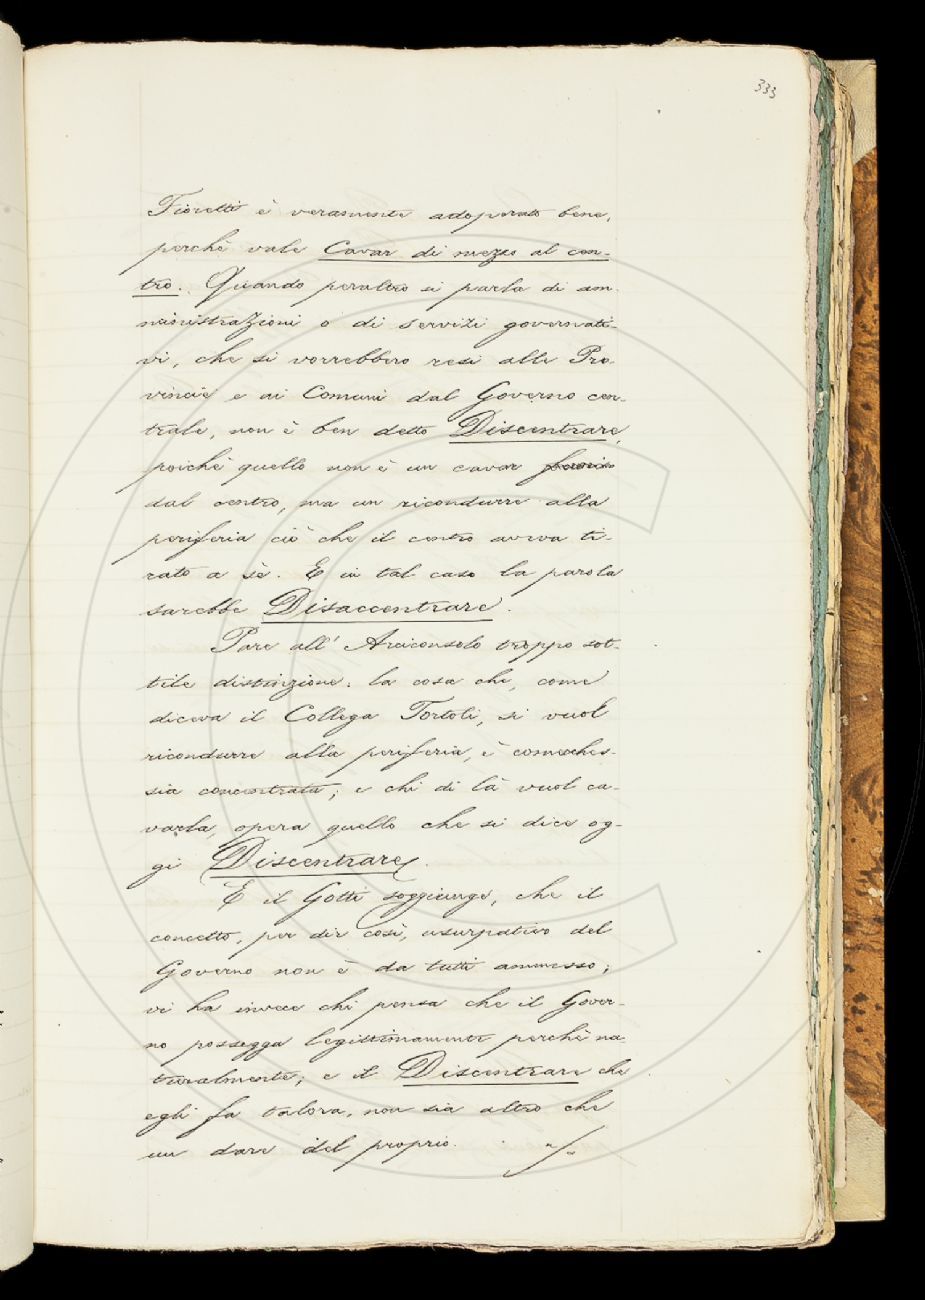 333
Fioretti è veramente adoperato bene,
perchè vale Cavar di mezzo al cen-
tro. Quando peraltro si parla di am-
ministrazioni o di servizi governati-
vi, che si vorrebbero resi alle Pro-
vincie e ai Comuni dal Governo cen-
trale, non è ben detto Discentrare,
poichè quello non è un cavar
dal centro, ma un ricondurre alla
periferia ciò che il centro aveva ti-
rato a sè. E in tal caso la parola
sarebbe Disaccentrare.
Pare all' Arciconsolo troppo sot-
tile distinzione: la cosa che, come
diceva il Collega Tortoli, si vuol
ricondurre alla periferia, è
sia concentrata; e chi di là vuol ca-
varla, opera quello che si dice og-
gi Discentrare.
E il Gotti soggiunge, che il
concetto, per dir così, usurpativo del
Governo non è da tutti ammesso;
vi ha invece chi pensa che il Gover-
no possegga legittimamente perchè na-
turalmente; e il Discentrare che
egli fa talora, non sia altro che
un dare del proprio.